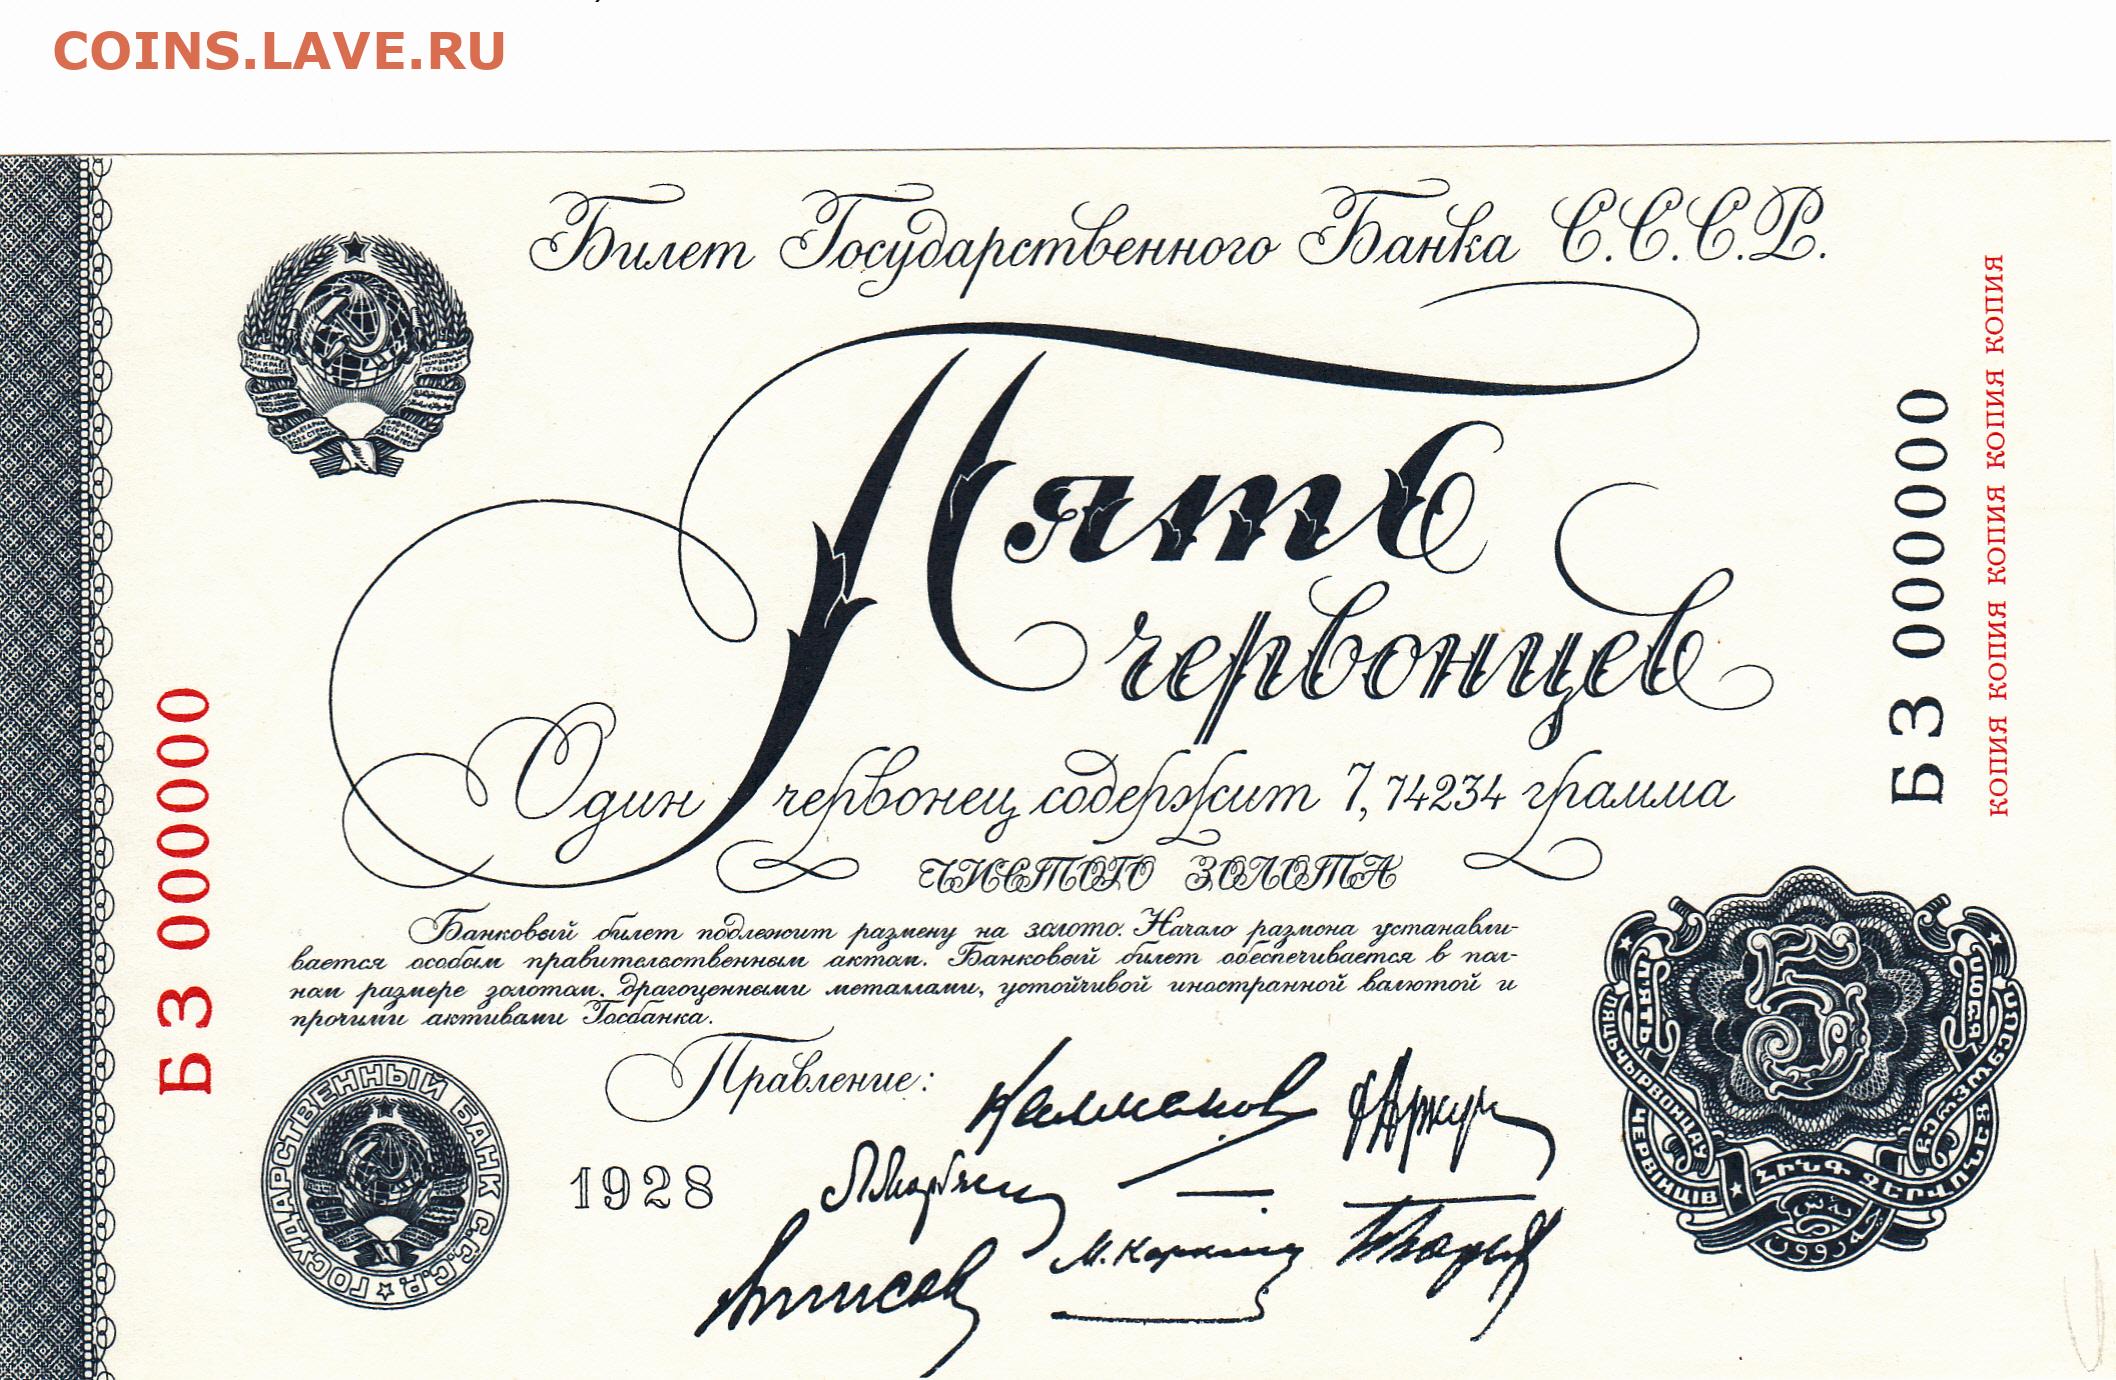 COINS.LAVE.RU
Билет Государственного Банка С.С.С.Р.
Пять
червонцев
Один червонец содержит 7,74234 грамма
ЧИСТОГО ЗОЛОТА
Банковый билет подлежит размену на золото. Начало размена устанавли-
вается особым правительственным актом. Банковый билет обеспечивается в пол-
ном размере золотом, драгоценными металлами, устойчивой иностранной валютой и
прочими активами Госбанка.
Правление:
1928
БЗ 000000
БЗ 000000
КОПИЯ КОПИЯ КОПИЯ КОПИЯ КОПИЯ
ГОСУДАРСТВЕННЫЙ БАНК С.С.С.Р.
5
П'ЯТЬ
ЧЕРВІНЦІВ
ПЯЦЬ ЧЫРВОНЦАУ
ՀԻՆԳ ՉԵՐՎՈՆԵՑ
М. Карклин